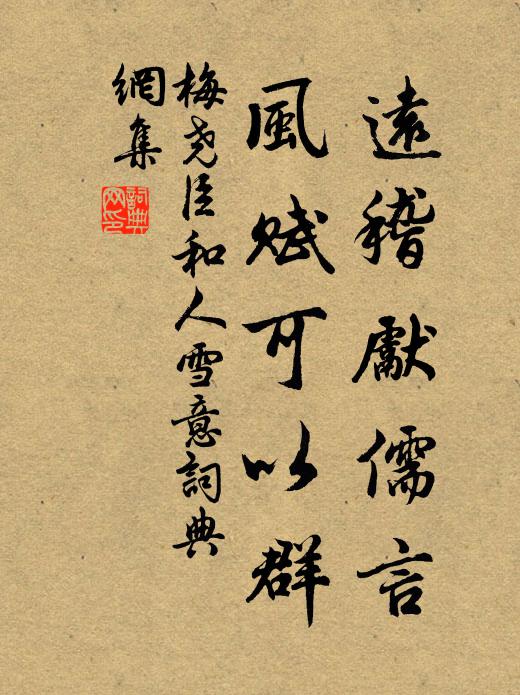 遠稽獻儒言
風賦可以群
梅堯臣和人雪意詞典
網集
詞典
网印